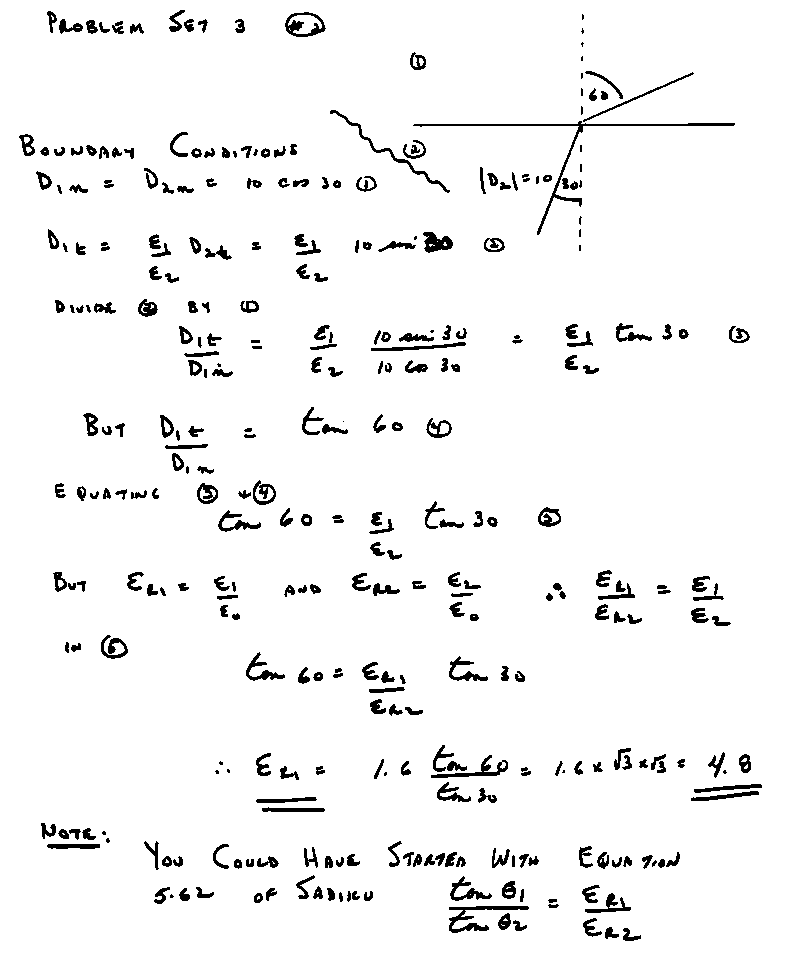 PROBLEM SET 3 #2
①
60
BOUNDARY CONDITIONS
②
D1n = D2n = 10 cos 30 ①
|D2| = 10
30
D1t = ε1/ε2 D2t = ε1/ε2 10 sin 30 ②
DIVIDE ② BY ①
D1t/D1n = ε1/ε2 10 sin 30/10 cos 30 = ε1/ε2 tan 30 ③
BUT D1t/D1n = tan 60 ④
EQUATING ③ + ④
tan 60 = ε1/ε2 tan 30 ⑤
BUT εR1 = ε1/ε0 AND εR2 = ε2/ε0 ∴ εR1/εR2 = ε1/ε2
IN ⑤
tan 60 = εR1/εR2 tan 30
∴ εR1 = 1.6 tan 60/tan 30 = 1.6 x √3 x √3 = 4.8
NOTE:
YOU COULD HAVE STARTED WITH EQUATION
5.62 OF SADIKU tan θ1/tan θ2 = εR1/εR2